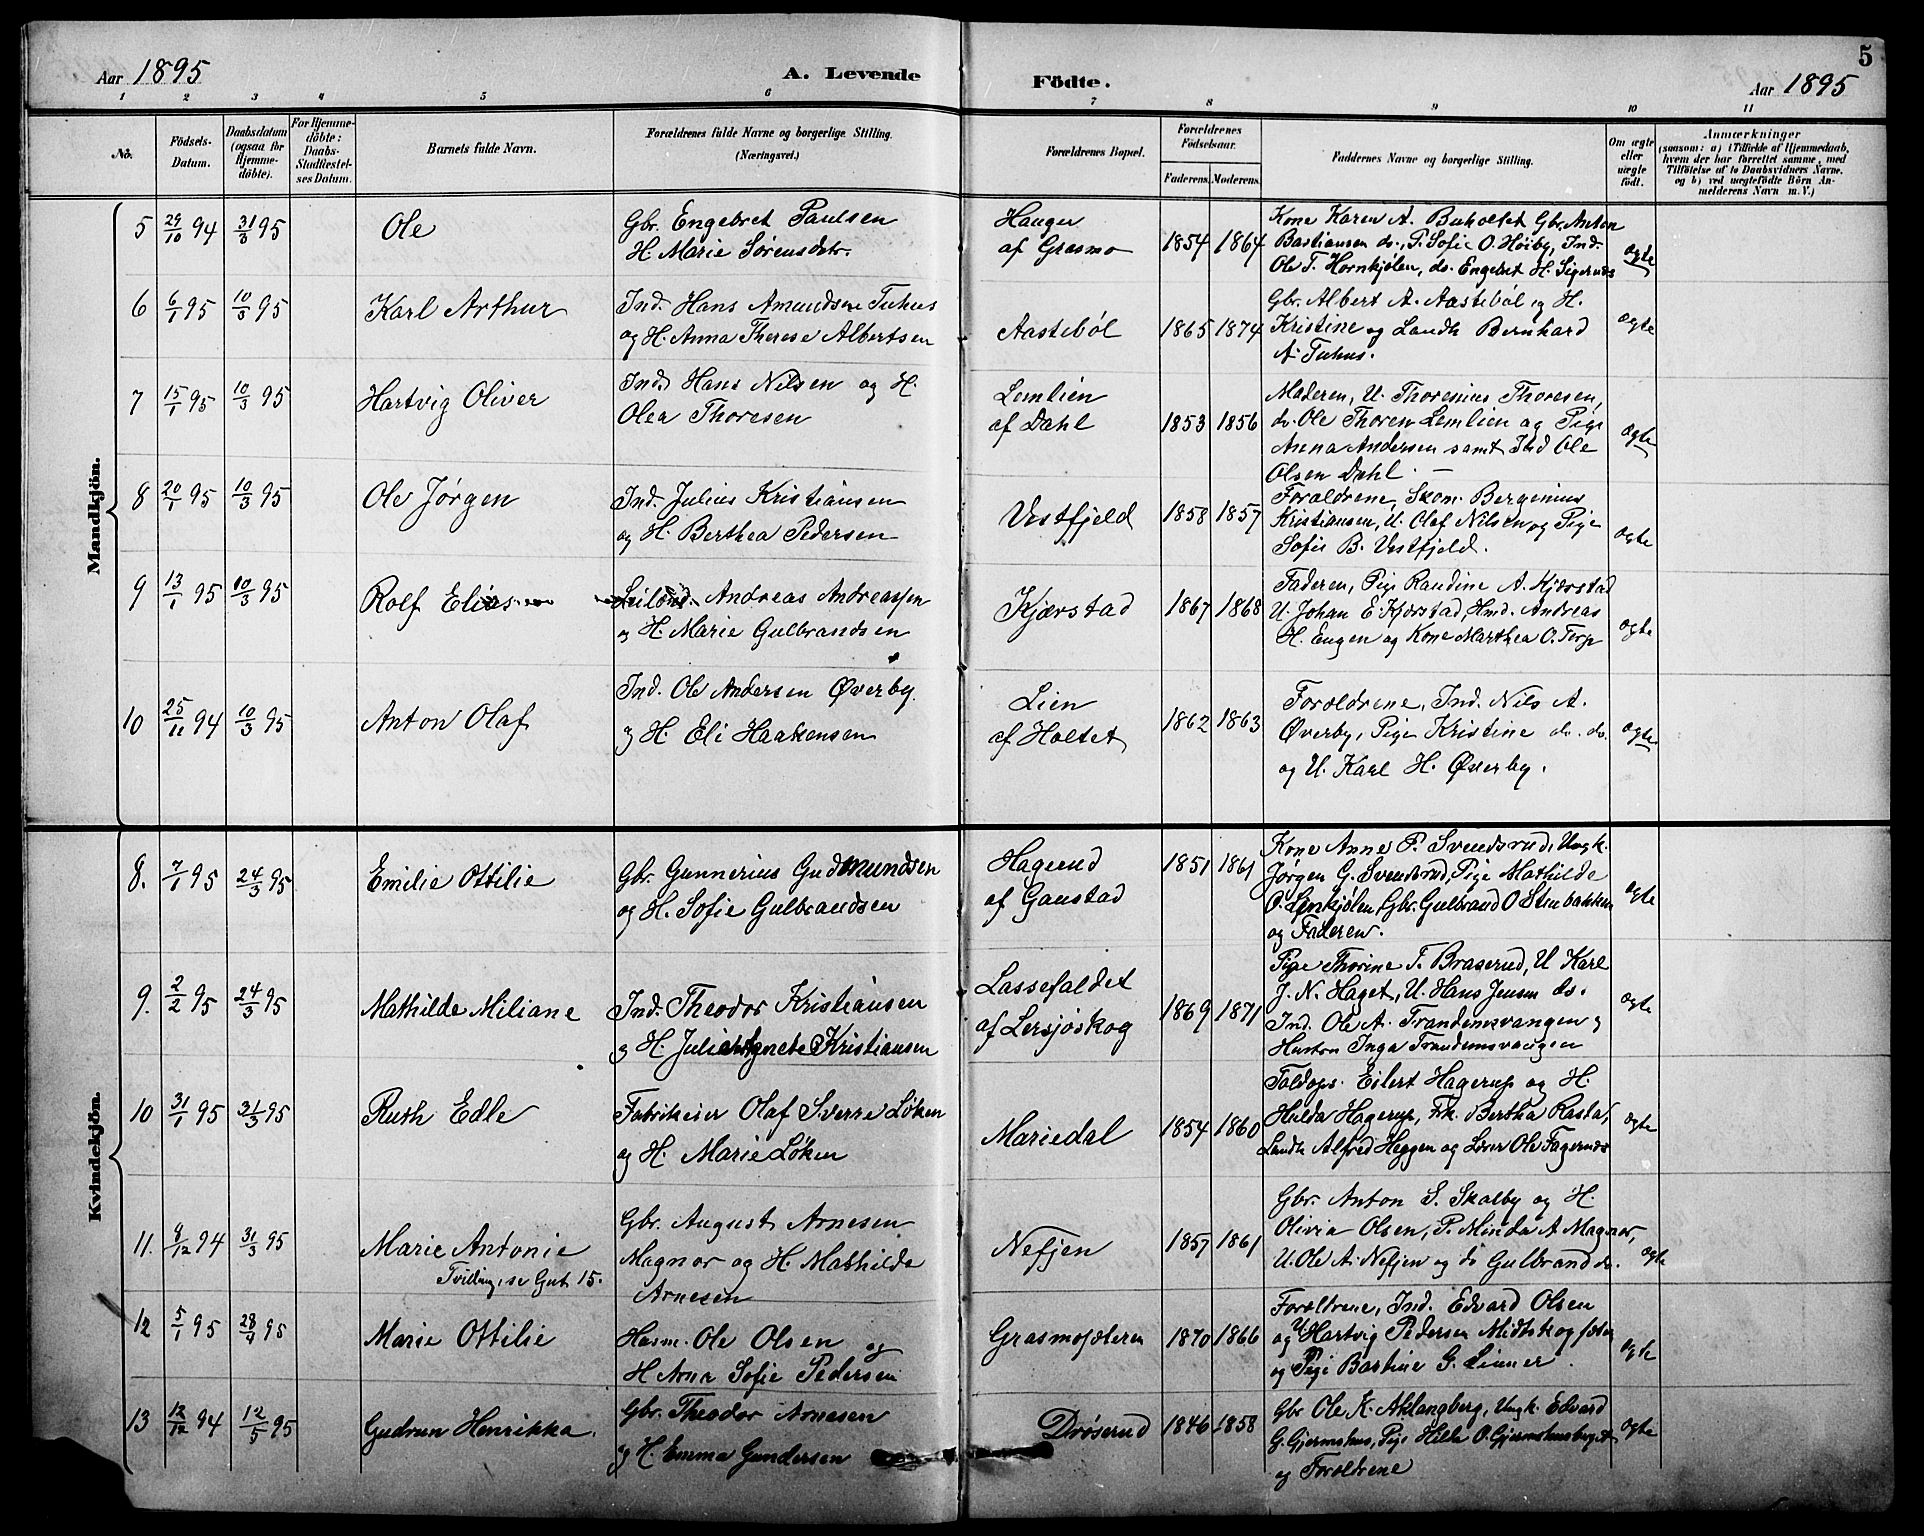 Aar 1895
A. Levende
Födte.
Aar 1895
5
1 2 3 4 5 6 7 8 9 10 11
No.
Födsels-
Datum.
Daabsdatum
(ogsaa for
Hjemme-
döbte).
For Hjemme-
döbte:
Daabs-
Stadfæstel-
ses Datum.
Barnets fulde Navn.
Forældrenes fulde Navne og borgerlige Stilling.
(Næringsvei.)
Forældrenes Bopæl.
Forældrenes
Födselsaar.
Faderens. Moderens.
Faddernes Navne og borgerlige Stilling.
Om ægte
eller
uægte
født.
Anmærkninger
(saasom: a) i Tilfælde af Hjemmedaab,
hvem der har forrettet samme, med
Tilföielse af to Daabsvidners Navne,
og b) ved uægtefödte Börn An-
melderens Navn m. V.)
Mandkjön.
5 29/10 94 31/3 95
Ole
Gbr. Engebret Paulsen
H. Marie Sørensdtr.
Hauger
af Grasmo
1854 1864
Kone Karen A. Buholtet Gbr. Anton
Bastiansen ds., P. Sofie O. Høiby, Ind.
Ole T. Hornkjølen, ds. Engebret H. Sigernes
ægte
6 6/1 95 10/3 95
Karl Arthur
Ind. Hans Amundsen Tuhus
og H. Anna Therese Albertsen
Aastebøl
1865 1874
Gbr. Albert A. Aastebøl og H.
Kristine og Landh Bernhard
A. Tuhus.
ægte
7 15/1 95 10/3 95
Hartvig Oliver
Ind. Hans Nilsen og H.
Olea Thoresen
Lemlien
af Dahl
1853 1856
Moderen, U. Thorenius Thoresen,
ds. Ole Thoresn Lemlien og Pige
Anna Andersen samt Ind Ole
Olsen Dahl.
ægte
8 20/1 95 10/3 95
Ole Jørgen
Ind. Julius Kristiansen
og H. Berthea Pedersen
Vestfjeld
1858 1857
Forældrene, Skom. Bergenius
Kristiansen, U. Olaf Nilsen og Pige
Sofie B. Vestfjeld.
ægte
9 13/1 95 10/3 95
Rolf Elias
Leilænd. Andreas Andreassen
og H. Marie Gulbrandsen
Kjærstad
1867 1868
Faderen, Pige Randine A. Kjærstad
U. Johan E. Kjærstad, Hmd. Andreas
H. Engen og Kone Marthea O. Torp
ægte
10 25/11 94 10/3 95
Anton Olaf
Ind. Ole Andersen Øverby.
og H. Eli Haakensen
Lien
af Holtet
1862 1863
Forældrene, Ind. Nils A.
Øverby, Pige Kristine ds. ds.
og U. Karl H. Øverby.
ægte
Kvindekjön.
8. 7/1 95 24/3 95
Emilie Ottilie
Gbr. Gunnerius Gudmundsen
og H. Sofie Gulbrandsen
Hagerud
af Gaustad
1851 1861
Kone Anne P. Svendsrud, Ungk.
Jørgen G. Svendsrud, Pige Mathilde
O. Lenkjølen, Gbr. Gulbrand O Stenbakken
og Faderen.
ægte
9. 2/2 95 24/3 95
Mathilde Miliane
Ind. Theodor Kristiansen
og H. Julie Agnete Kristiansen
Lassefaldet
af Lersjøskog
1869 1871
Pige Thorine T. Braserud, U Karl
J. N. Haget, U. Hans Jensen ds.
Ind. Ole A. Trandemsvangen og
Hustru Inga Trandemsvangen
ægte
10 31/1 95 31/3 95
Ruth Edle
Fabrikeier Olaf Sverre Løken
og H. Marie Løken
Mariedal
1854 1860
Toldops. Eilert Hagerup og H.
Hulda Hagerup, Frk. Bertha Rasta,
Landh Alfred Heggen og Lærer Ole Fagernæs
ægte
11. 8/12 94 31/3 95
Marie Antonie
Tvilling, se Gut 15.
Gbr. August Arnesen
Magnor og H. Mathilde
Arnesen
Nefjen
1857 1861
Gbr. Anton S. Skalby og H.
Olivia Olsen, P. Minda A Magnor,
U. Ole A. Nefjen og ds Gulbrand ds.
ægte
12 5/1 95 28/4 95
Marie Ottilie
Husm. Ole Olsen og
H Anna Sofie Pedersen
Grasmosæteren
1870 1866
Forældrene, Ind. Edvard Olsen
og U Hartvig Pedersen Midtskogsæter
og Pige Bastine G. Linner.
ægte
13 12/12 94 12/5 95
Gudrun Henrikka.
Gbr. Theodor Arnesen
og H. Emma Gundersen
Drøserud
1846 1858
Gbr Ole K. Aklangberg, Ungk. Edvard
G. Gjermshus, Pige Hilda O. Gjermshusberget
og Forældrene
ægte